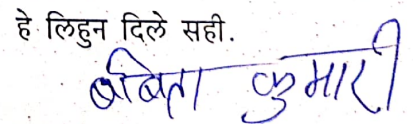 हे लिहुन दिले सही.
बबिता कुमारी